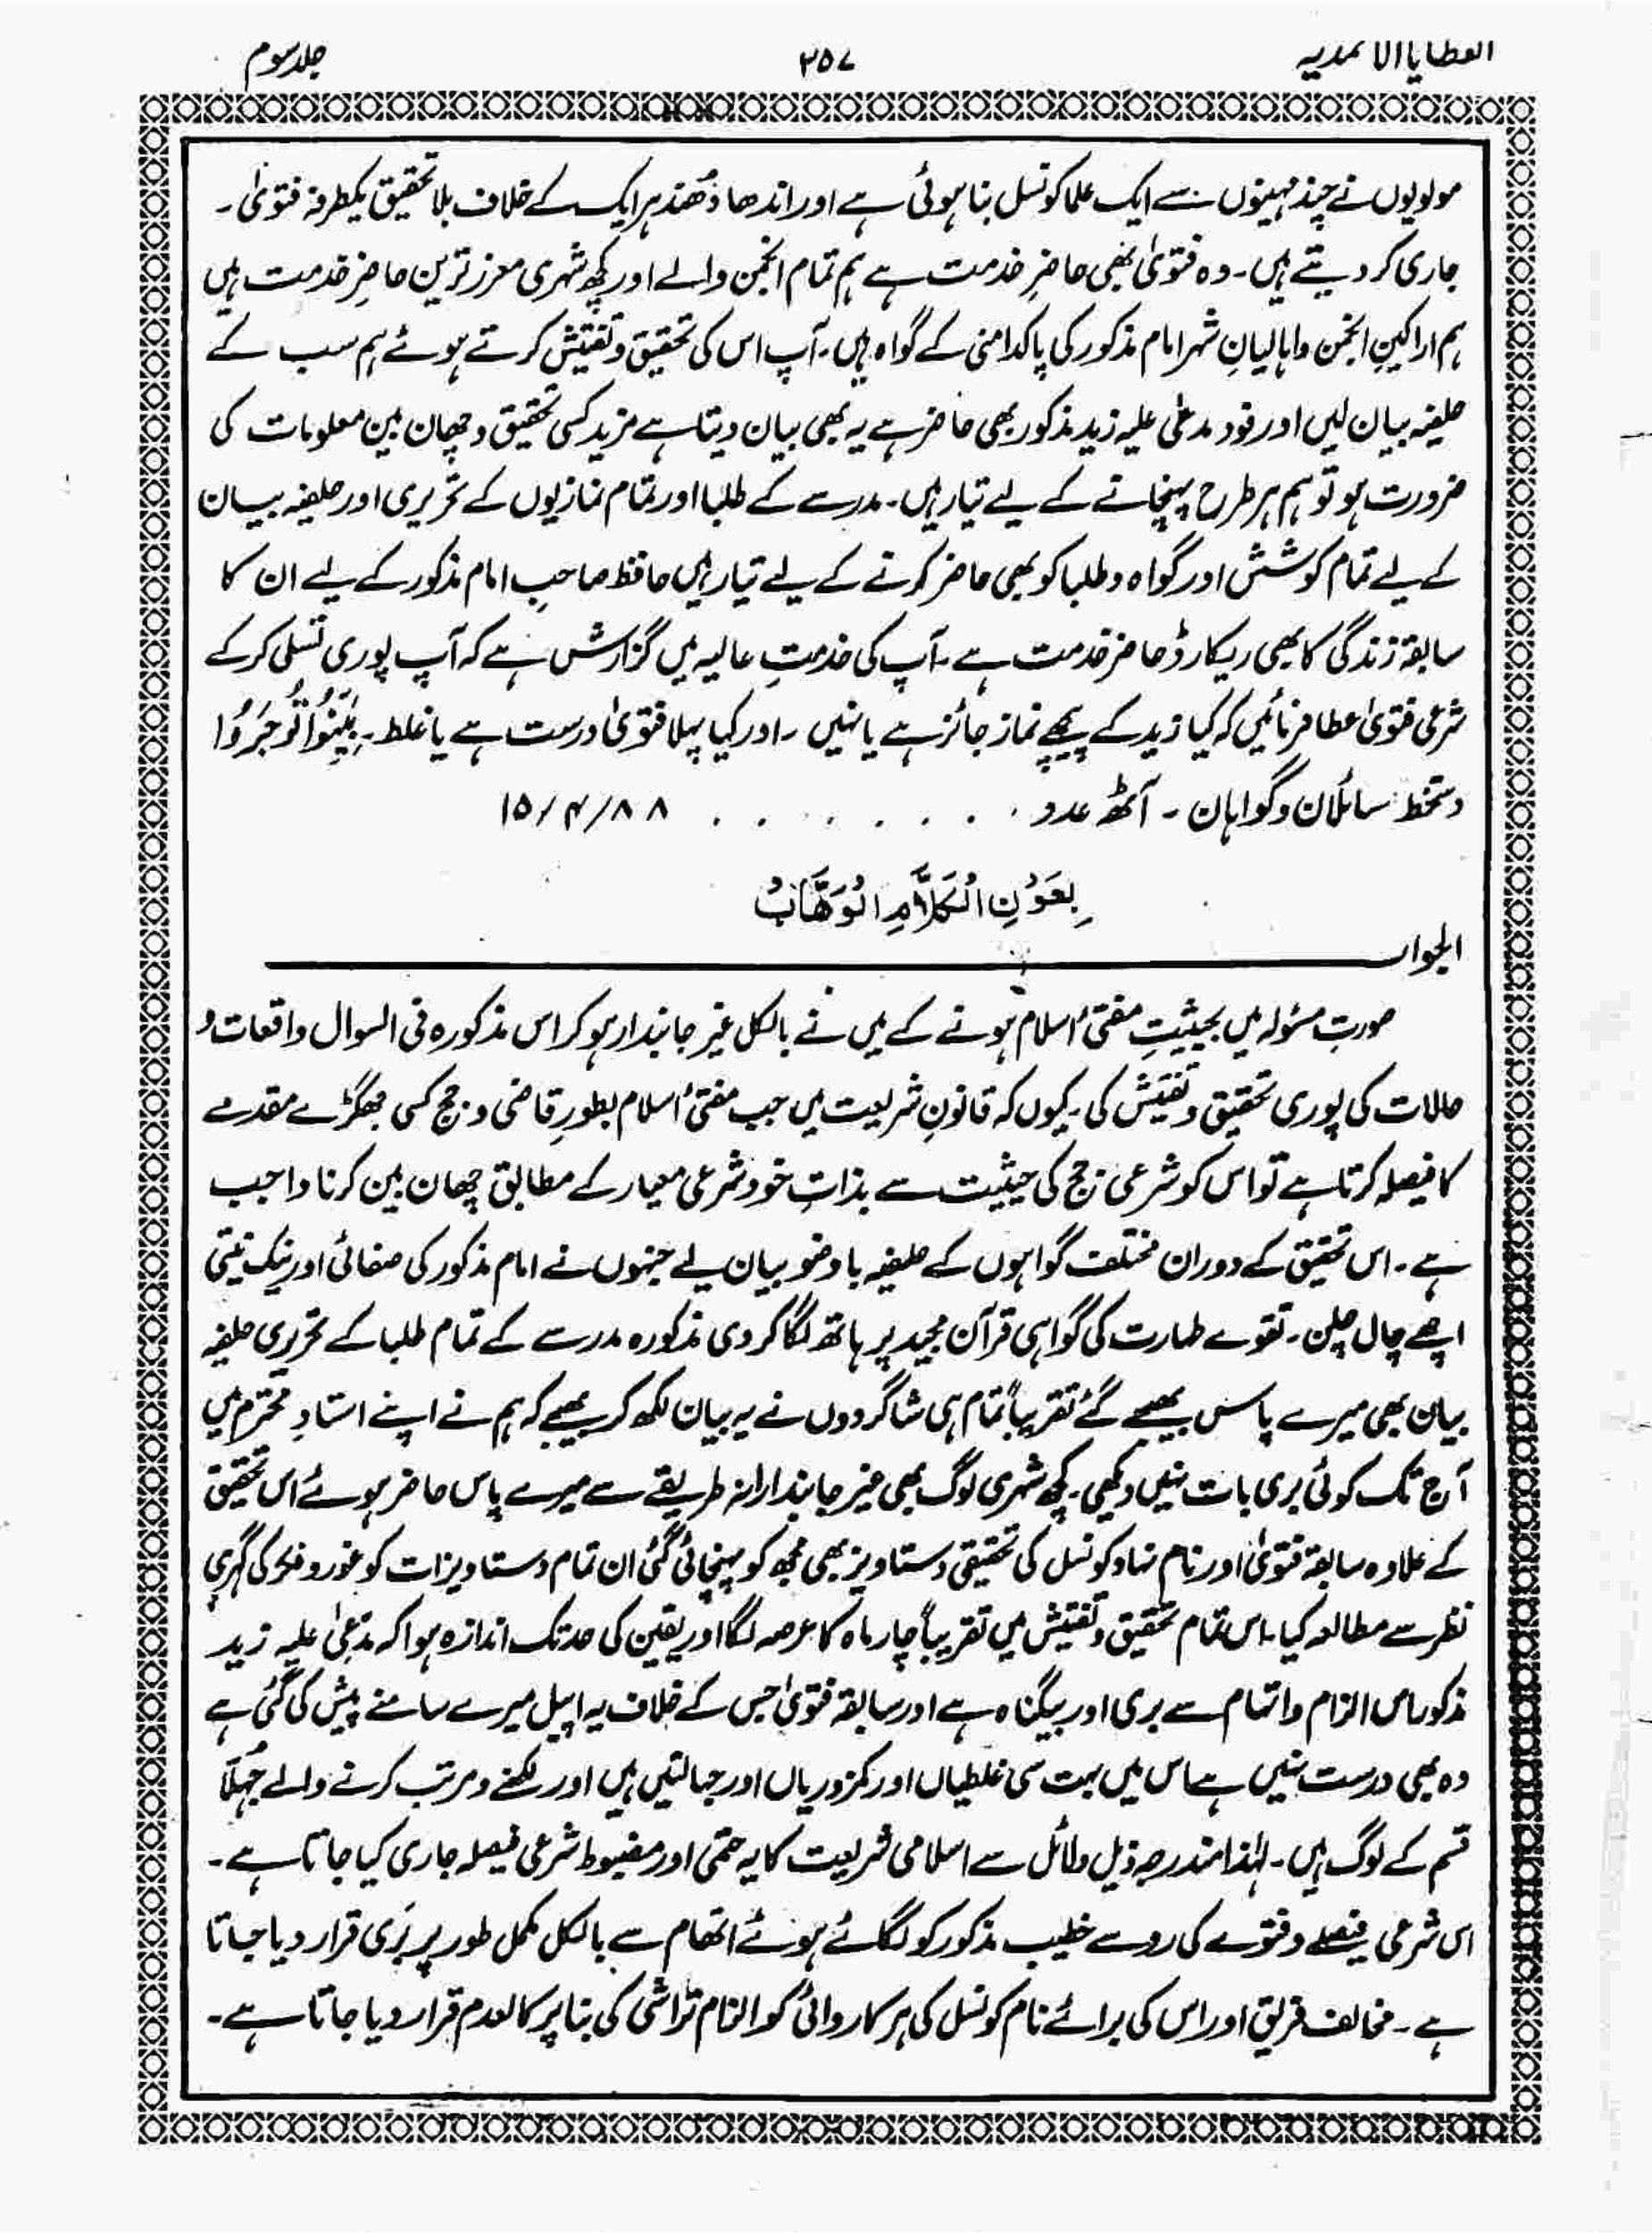 العطایا الاحمدیہ
۳۵۷
جلد سوم
مولویوں نے چند مہینوں سے ایک علما کونسل بنا ہوئی ہے اور اندھا دُھند ہر ایک کے خلاف بلا تحقیق یکطرفہ فتویٰ۔
جاری کر دیتے ہیں۔ وہ فتویٰ بھی حاضرِ خدمت ہے ہم تمام انجمن والے اور کچھ شہری معزز ترین حاضرِ خدمت ہیں
ہم اراکینِ انجمن و اہالیانِ شہر امام مذکور کی پاکدامنی کے گواہ ہیں۔ آپ اس کی تحقیق و تفتیش کرتے ہوئے ہم سب کے
حلفیہ بیان لیں اور خود مدعٰی علیہ زید مذکور بھی حاضر ہے یہ بھی بیان دیتا ہے مزید کسی تحقیق و چھان بین معلومات کی
ضرورت ہو تو ہم ہر طرح پہنچانے کے لیے تیار ہیں۔ مدرسے کے طلبا اور تمام نمازیوں کے تحریری اور حلفیہ بیان
کے لیے تمام کوشش اور گواہ و طلبا کو بھی حاضر کرنے کے لیے تیار ہیں حافظ صاحب امام مذکور کے لیے ان کا
سابقہ زندگی کا بھی ریکارڈ حاضر خدمت ہے۔ آپ کی خدمتِ عالیہ میں گزارش ہے کہ آپ پوری تسلی کر کے
شرعی فتویٰ عطا فرمائیں کہ کیا زید کے پیچھے نماز جائز ہے یا نہیں۔ اور کیا پہلا فتویٰ درست ہے یا غلط۔ بَیِّنُوْا تُوْجَرُوْا
دستخط سائلان و گواہان۔ آٹھ عدد . . . . . . . . ۱۵/۴/۸۸
بِعَوْنِ الْعَلَّامِ الْوَهَّابُ
الجواب
صورتِ مسئولہ میں بحیثیتِ مفتیٔ اسلام ہونے کے میں نے بالکل غیر جانبدار ہو کر اس مذکورہ فی السوال واقعات و
حالات کی پوری تحقیق و تفتیش کی۔ کیوں کہ قانونِ شریعت میں جب مفتیٔ اسلام بطورِ قاضی و جج کسی جھگڑے مقدمے
کا فیصلہ کرتا ہے تو اس کو شرعی جج کی حیثیت سے بذاتِ خود شرعی معیار کے مطابق چھان بین کرنا واجب
ہے۔ اس تحقیق کے دوران مختلف گواہوں کے حلفیہ با وضو بیان لیے جنہوں نے امام مذکور کی صفائی اور نیک نیتی
اچھے چال چلن۔ تقوے طہارت کی گواہی قرآن مجید پر ہاتھ لگا کر دی مذکورہ مدرسے کے تمام طلبا کے تحریری حلفیہ
بیان بھی میرے پاس بھیجے گئے تقریباً تمام ہی شاگردوں نے یہ بیان لکھ کر بھیجے کہ ہم نے اپنے استادِ محترم میں
آج تک کوئی بری بات نہیں دیکھی۔ کچھ شہری لوگ بھی غیر جانبدارانہ طریقے سے میرے پاس حاضر ہوئے اس تحقیق
کے علاوہ سابقہ فتویٰ اور نام نہاد کونسل کی تحقیقی دستاویز بھی مجھ کو پہنچائی گئی ان تمام دستاویزات کو غور و فکر کی گہری
نظر سے مطالعہ کیا۔ اس تمام تحقیق و تفتیش میں تقریباً چار ماہ کا عرصہ لگا اور یقین کی حد تک اندازہ ہوا کہ مدعٰی علیہ زید
مذکور اس الزام و اتہام سے بری اور بیگناہ ہے اور سابقہ فتویٰ جس کے خلاف یہ اپیل میرے سامنے پیش کی گئی ہے
وہ بھی درست نہیں ہے اس میں بہت سی غلطیاں اور کمزوریاں اور جہالتیں ہیں اور لکھنے و مرتب کرنے والے جُہلَا
قسم کے لوگ ہیں۔ لہٰذا مندرجہ ذیل دلائل سے اسلامی شریعت کا یہ حتمی اور مضبوط شرعی فیصلہ جاری کیا جاتا ہے۔
اس شرعی فیصلے و فتوے کی رو سے خطیب مذکور کو لگائے ہوئے اتھام سے بالکل مکمل طور پر بَری قرار دیا جاتا
ہے۔ مخالف فریق اور اس کی برائے نام کونسل کی ہر کاروائی کو الزام تراشی کی بنا پر کالعدم قرار دیا جاتا ہے۔